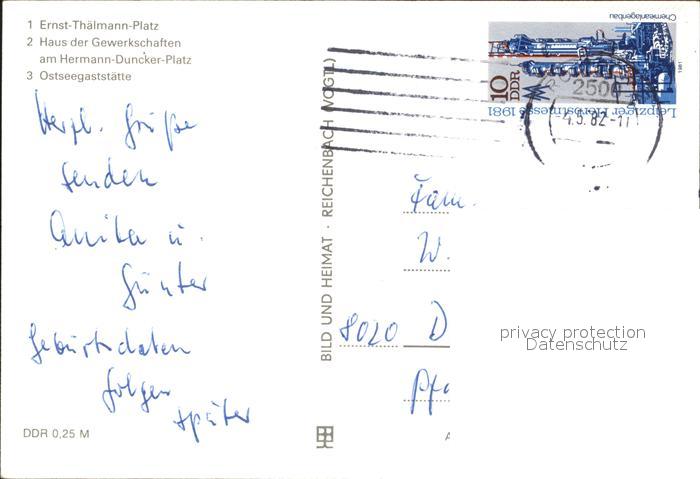 1 Ernst-Thälmann-Platz
2 Haus der Gewerkschaften
am Hermann-Duncker-Platz
3 Ostseegaststätte
Herzl. Grüße
senden
Anita u.
Günter
Geburtsdaten
folgen
später
DDR 0,25 M
BILD UND HEIMAT · REICHENBACH (VOGTL)
Chemieanlagenbau
1981
10
DDR
Leipziger Herbstmesse 1981
2500
-4.5.82-11
Fam.
W.
8020 D
privacy protection
Datenschutz